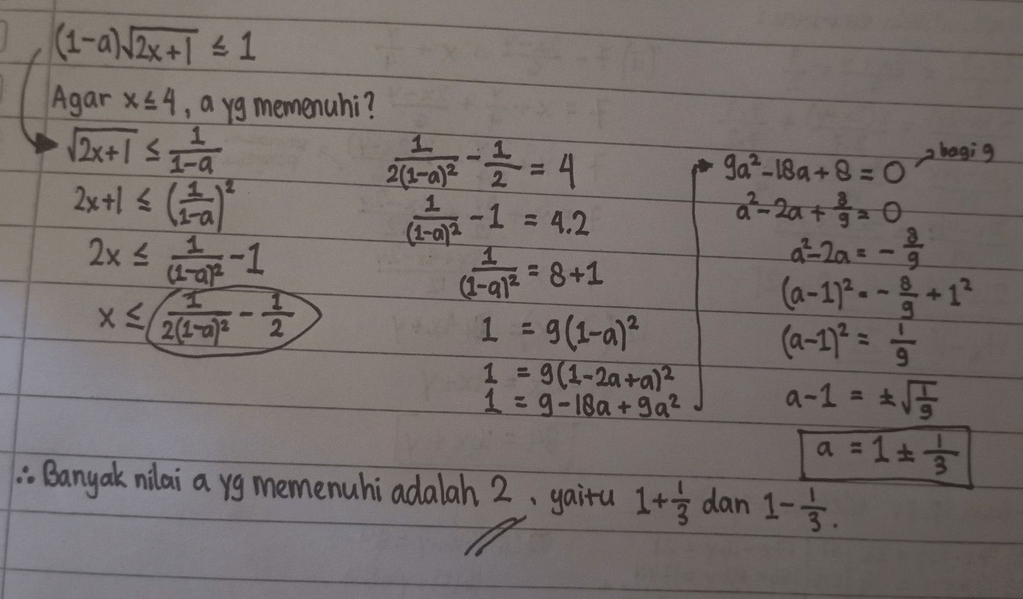 (1-a)√(2x+1) ≤ 1
Agar x ≤ 4, a yg memenuhi?
√(2x+1) ≤ 1/(1-a)
2x+1 ≤ (1/(1-a))²
2x ≤ 1/(1-a)² - 1
x ≤ 1/(2(1-a)²) - 1/2
1/(2(1-a)²) - 1/2 = 4
1/(1-a)² - 1 = 4.2
1/(1-a)² = 8+1
1 = 9(1-a)²
1 = 9(1-2a+a)²
1 = 9-18a+9a²
9a²-18a+8 = 0 bagi 9
a²-2a+8/9 = 0
a²-2a = -8/9
(a-1)² = -8/9 + 1²
(a-1)² = 1/9
a-1 = ±√(1/9)
a = 1 ± 1/3
∴ Banyak nilai a yg memenuhi adalah 2, yaitu 1+1/3 dan 1-1/3.